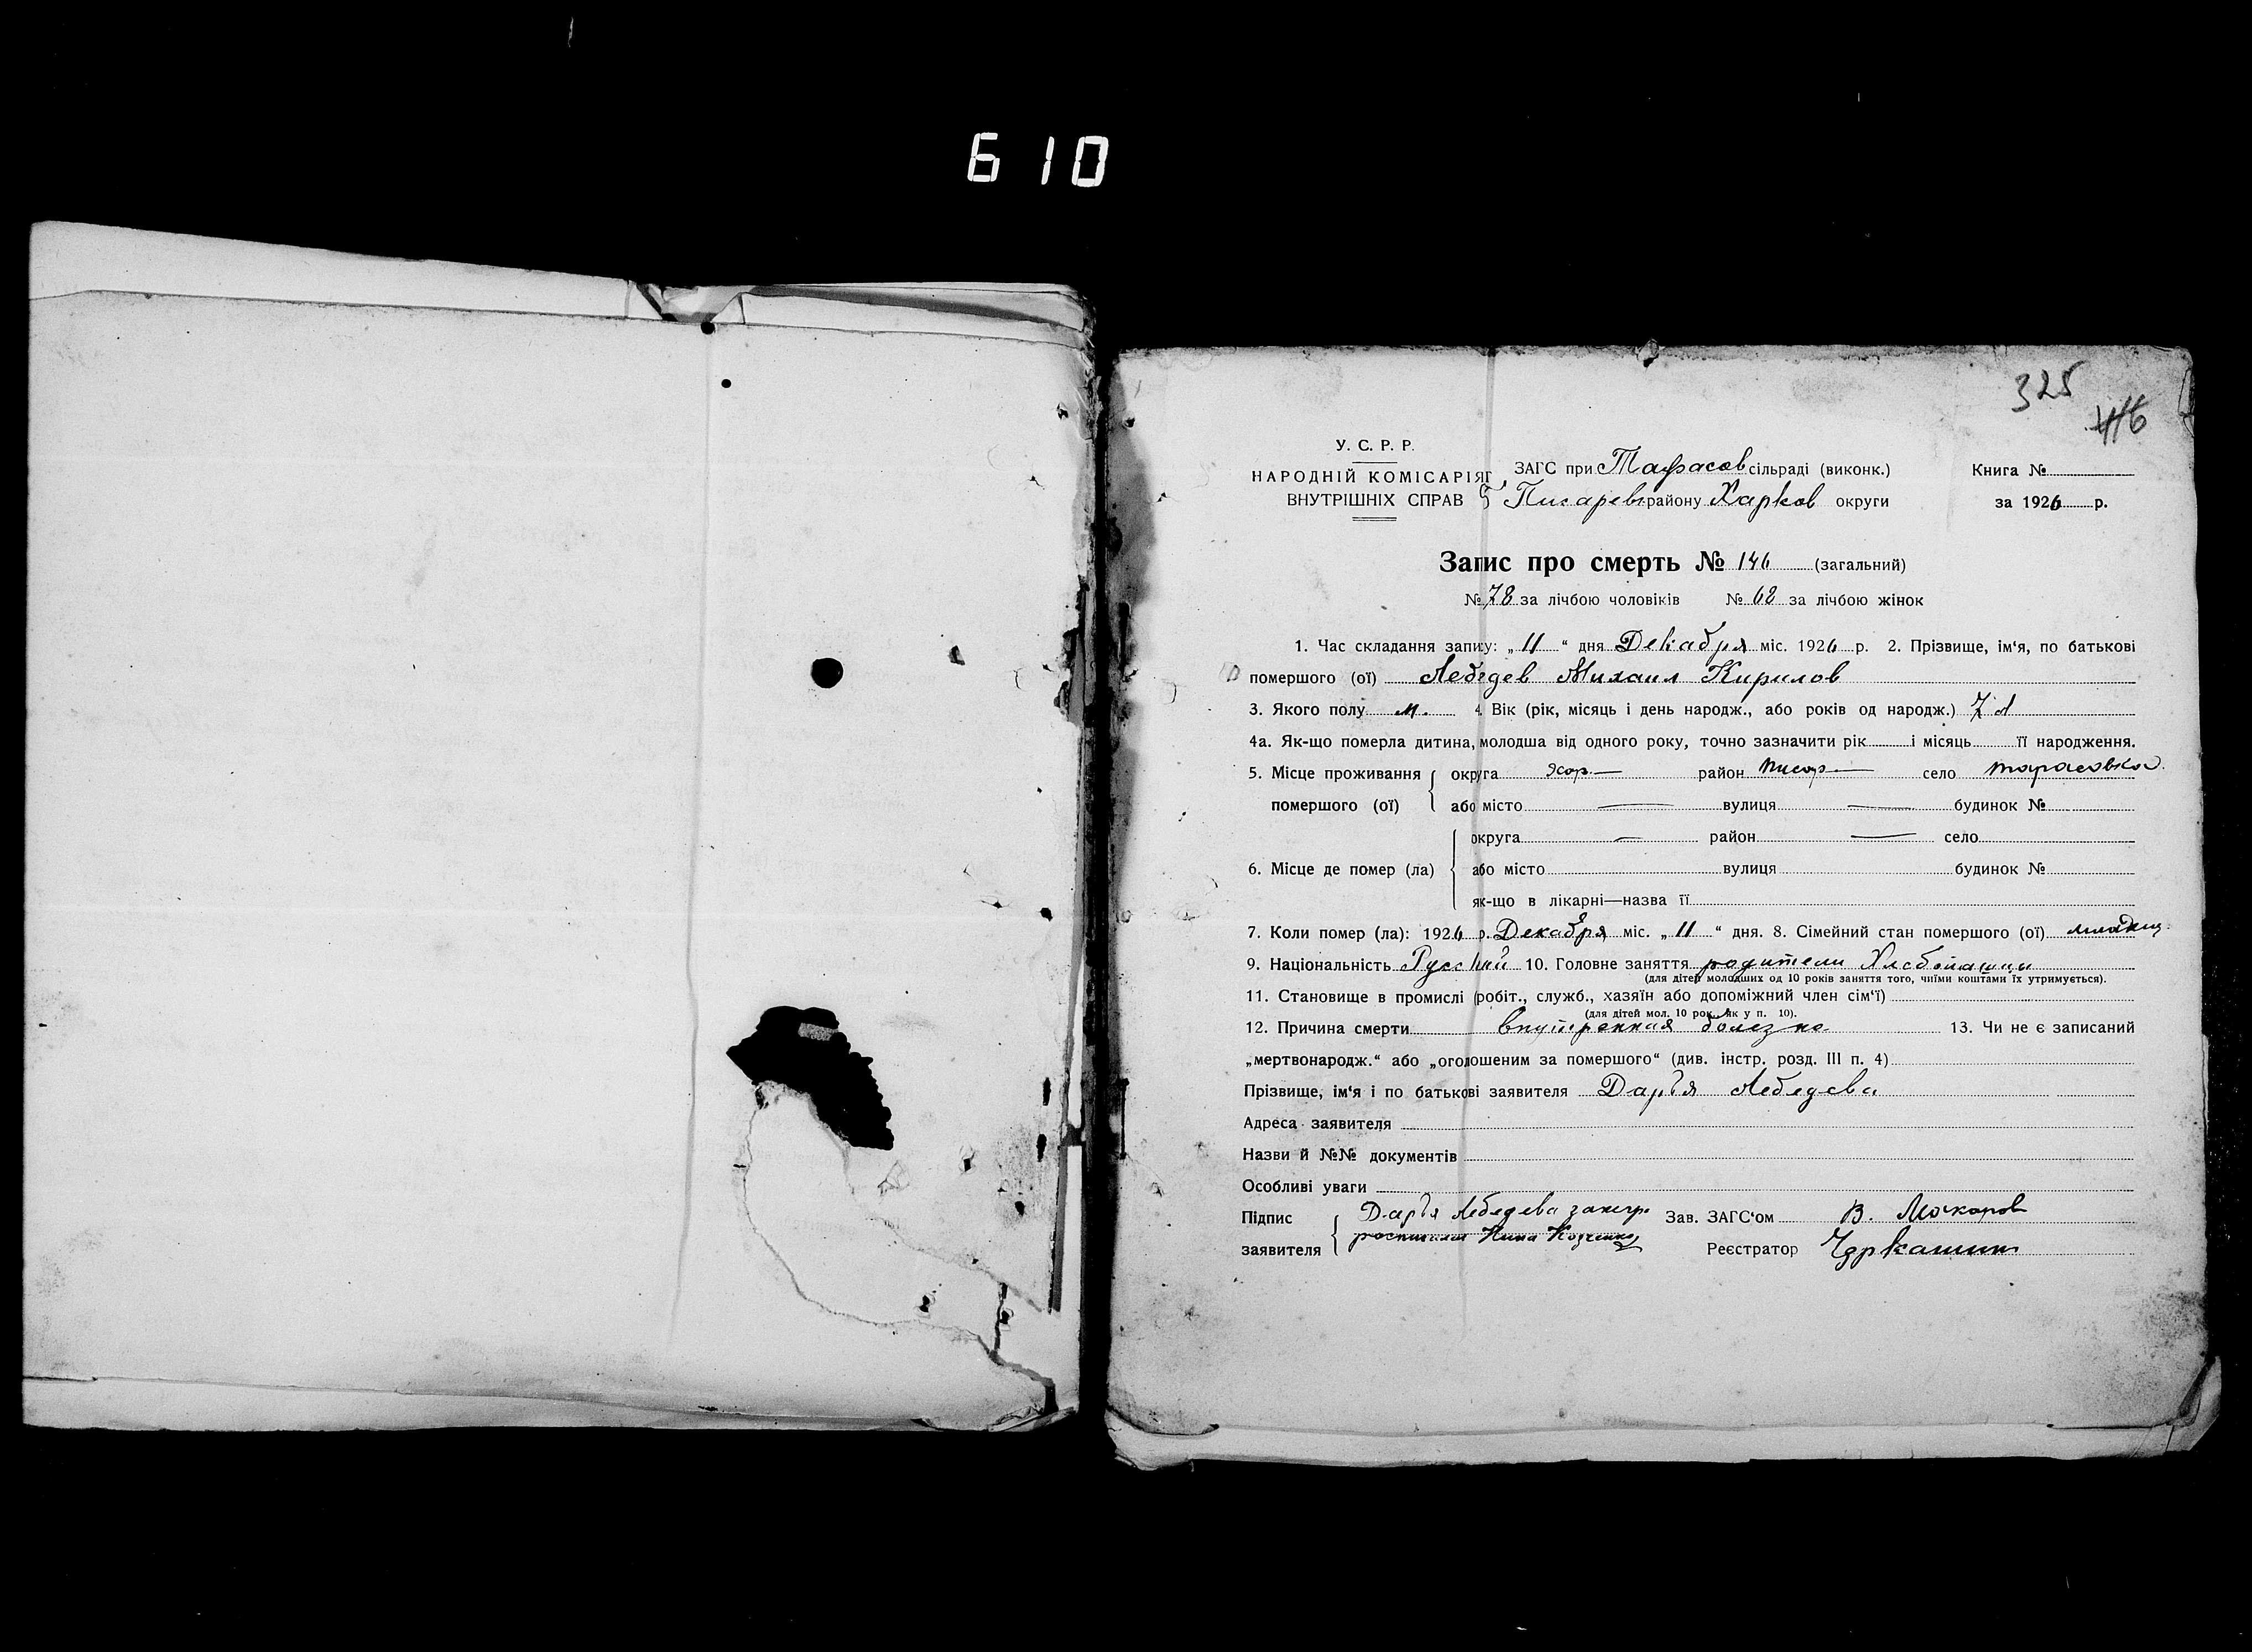 610
325
446
У. С. Р. Р.
НАРОДНІЙ КОМІСАРІЯТ
ВНУТРІШНІХ СПРАВ
ЗАГС при Тарасов сільраді (виконк.)
Писарев району Харков округи
Книга №
за 1926 р.
Запис про смерть № 146 (загальний)
№ 78 за лічбою чоловіків № 68 за лічбою жінок
1. Час складання запису: „ 11 “ дня Декабря міс. 1926 р. 2. Прізвище, ім‘я, по батькові
помершого (ої) Лебедев Михаил Кирилов
3. Якого полу м. 4. Вік (рік, місяць і день народж., або років од народж.) 7 л
4а. Як-що померла дитина, молодша від одного року, точно зазначити рік і місяць її народження.
5. Місце проживання округа Хар— район Писар— село Тарасовка
помершого (ої) або місто — вулиця — будинок №
округа — район — село
6. Місце де помер (ла) або місто вулиця будинок №
як-що в лікарні—назва її
7. Коли помер (ла): 1926 р. Декабря міс. „ 11 “ дня. 8. Сімейний стан помершого (ої)
9. Національність Русский 10. Головне заняття родители Хлебопашцы
(для дітей молодших од 10 років заняття того, чиїми коштами їх утримується).
11. Становище в промислі (робіт., служб., хазяїн або допоміжний член сім‘ї)
(для дітей мол. 10 рок. як у п. 10).
12. Причина смерти внутренная болезнь 13. Чи не є записаний
„мертвонародж.“ або „оголошеним за помершого“ (див. інстр. розд. III п. 4)
Прізвище, ім‘я і по батькові заявителя Дарья Лебедева
Адреса заявителя
Назви й №№ документів
Особливі уваги
Підпис Дарья Лебедева Зав. ЗАГС‘ом В. Макаров
заявителя Нина Реєстратор Чаркашин